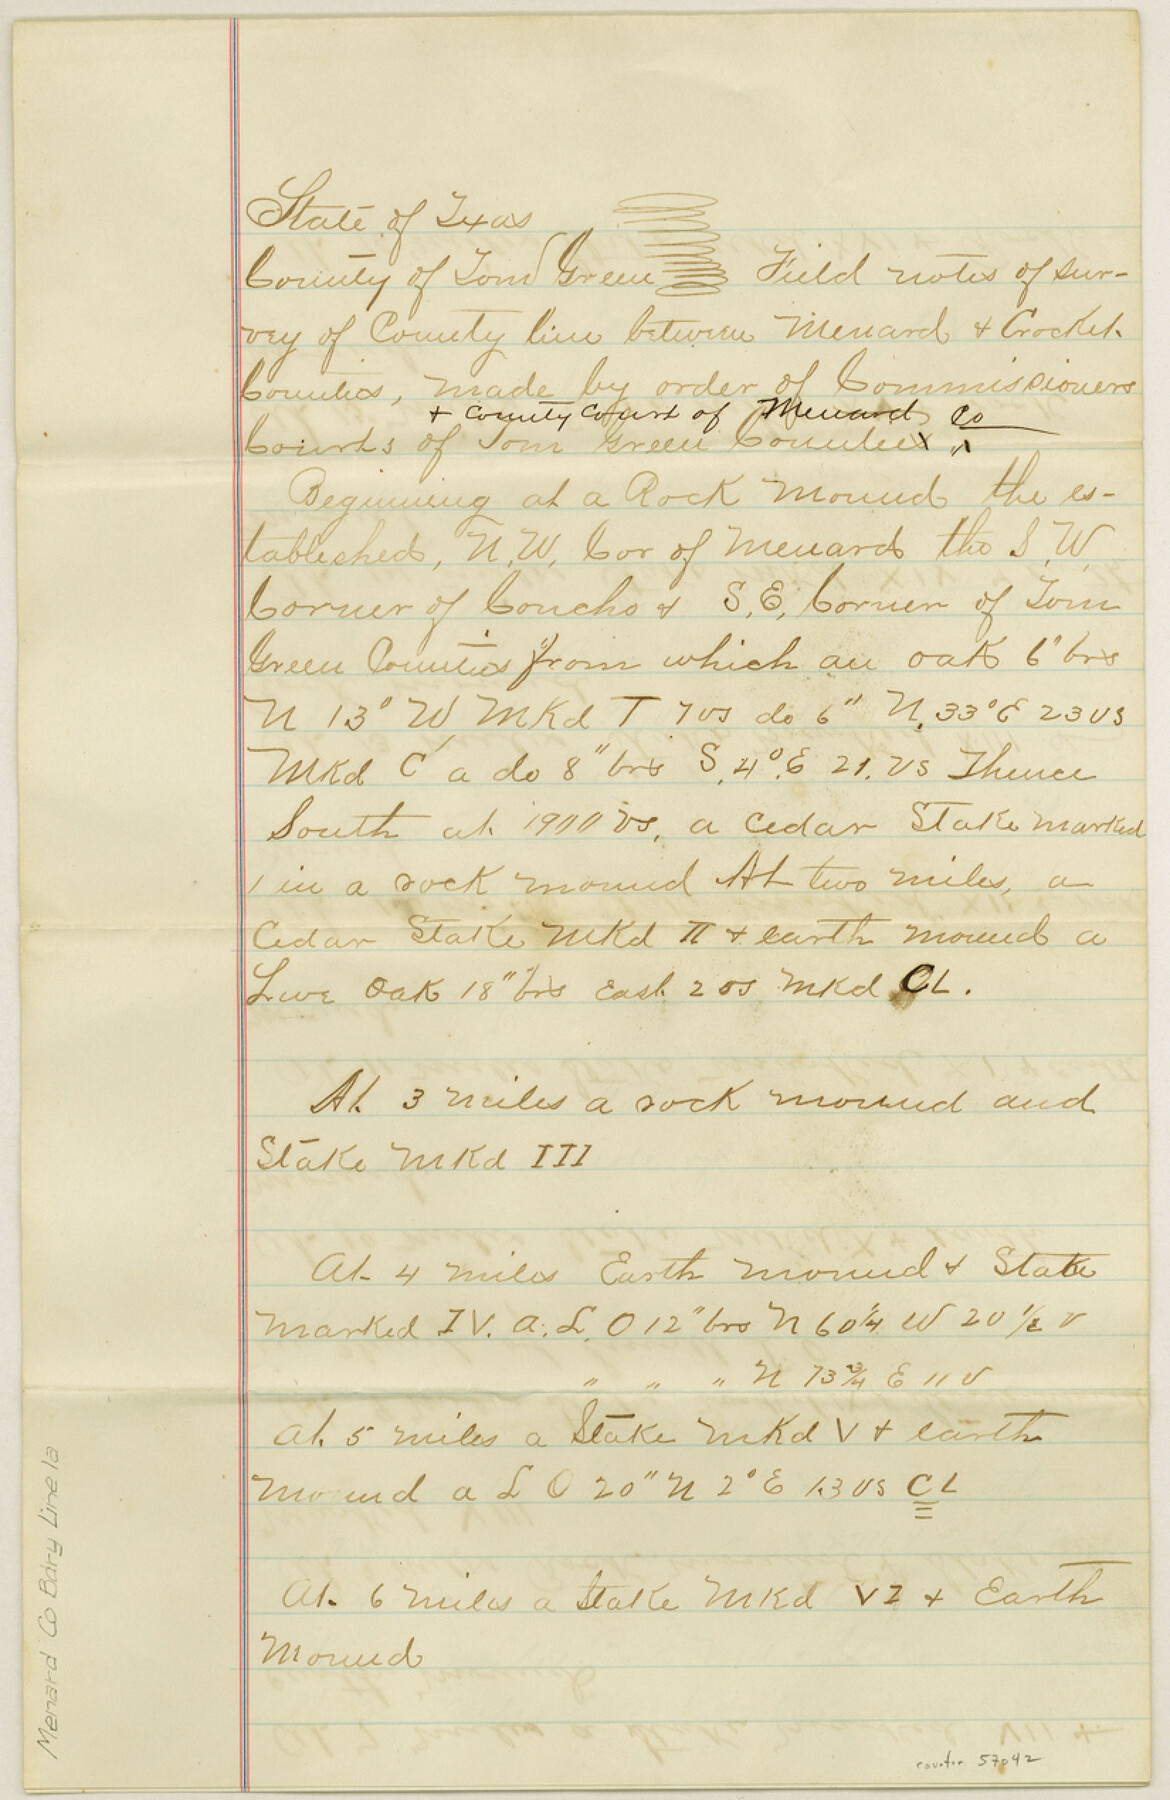 State of Texas
County of Tom Green Field notes of sur-
vey of County line between Menard & Crocket
Counties, made by order of Commissioners
& County Court of Menard Co
Courts of Tom Green Counties
Beginning at a Rock Mound the es-
tablished, N.W. Cor of Menard the S.W.
Corner of Concho & S.E. Corner of Tom
Green Counties from which an oak 6" brs
N 13° W Mkd T 7 vs do 6" N. 33° E 23 vs
Mkd C a do 8" brs S. 4° E 21. vs Thence
South at 1900 vs, a Cedar Stake marked
1 in a rock mound At two miles, a
Cedar Stake Mkd II & earth mound a
Live Oak 18" brs East 2 vs Mkd CL.
At 3 miles a rock mound and
Stake Mkd III
At 4 miles Earth mound & Stake
Marked IV. a. L. O 12" brs N 60 1/4 W 20 1/2 v
" " " N 73 3/4 E 11 v
At 5 miles a Stake Mkd V & earth
Mound a L O 20" N 2° E 13 vs CL
At 6 miles a Stake Mkd VI & Earth
Mound
Menard Co Bdry Line 1a
counter 57042